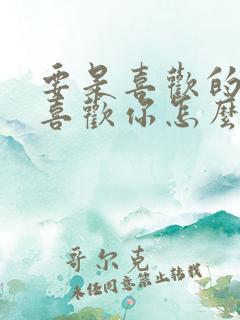 要是喜歡的
喜歡你怎麼
哥尔克
未经同意禁止转载